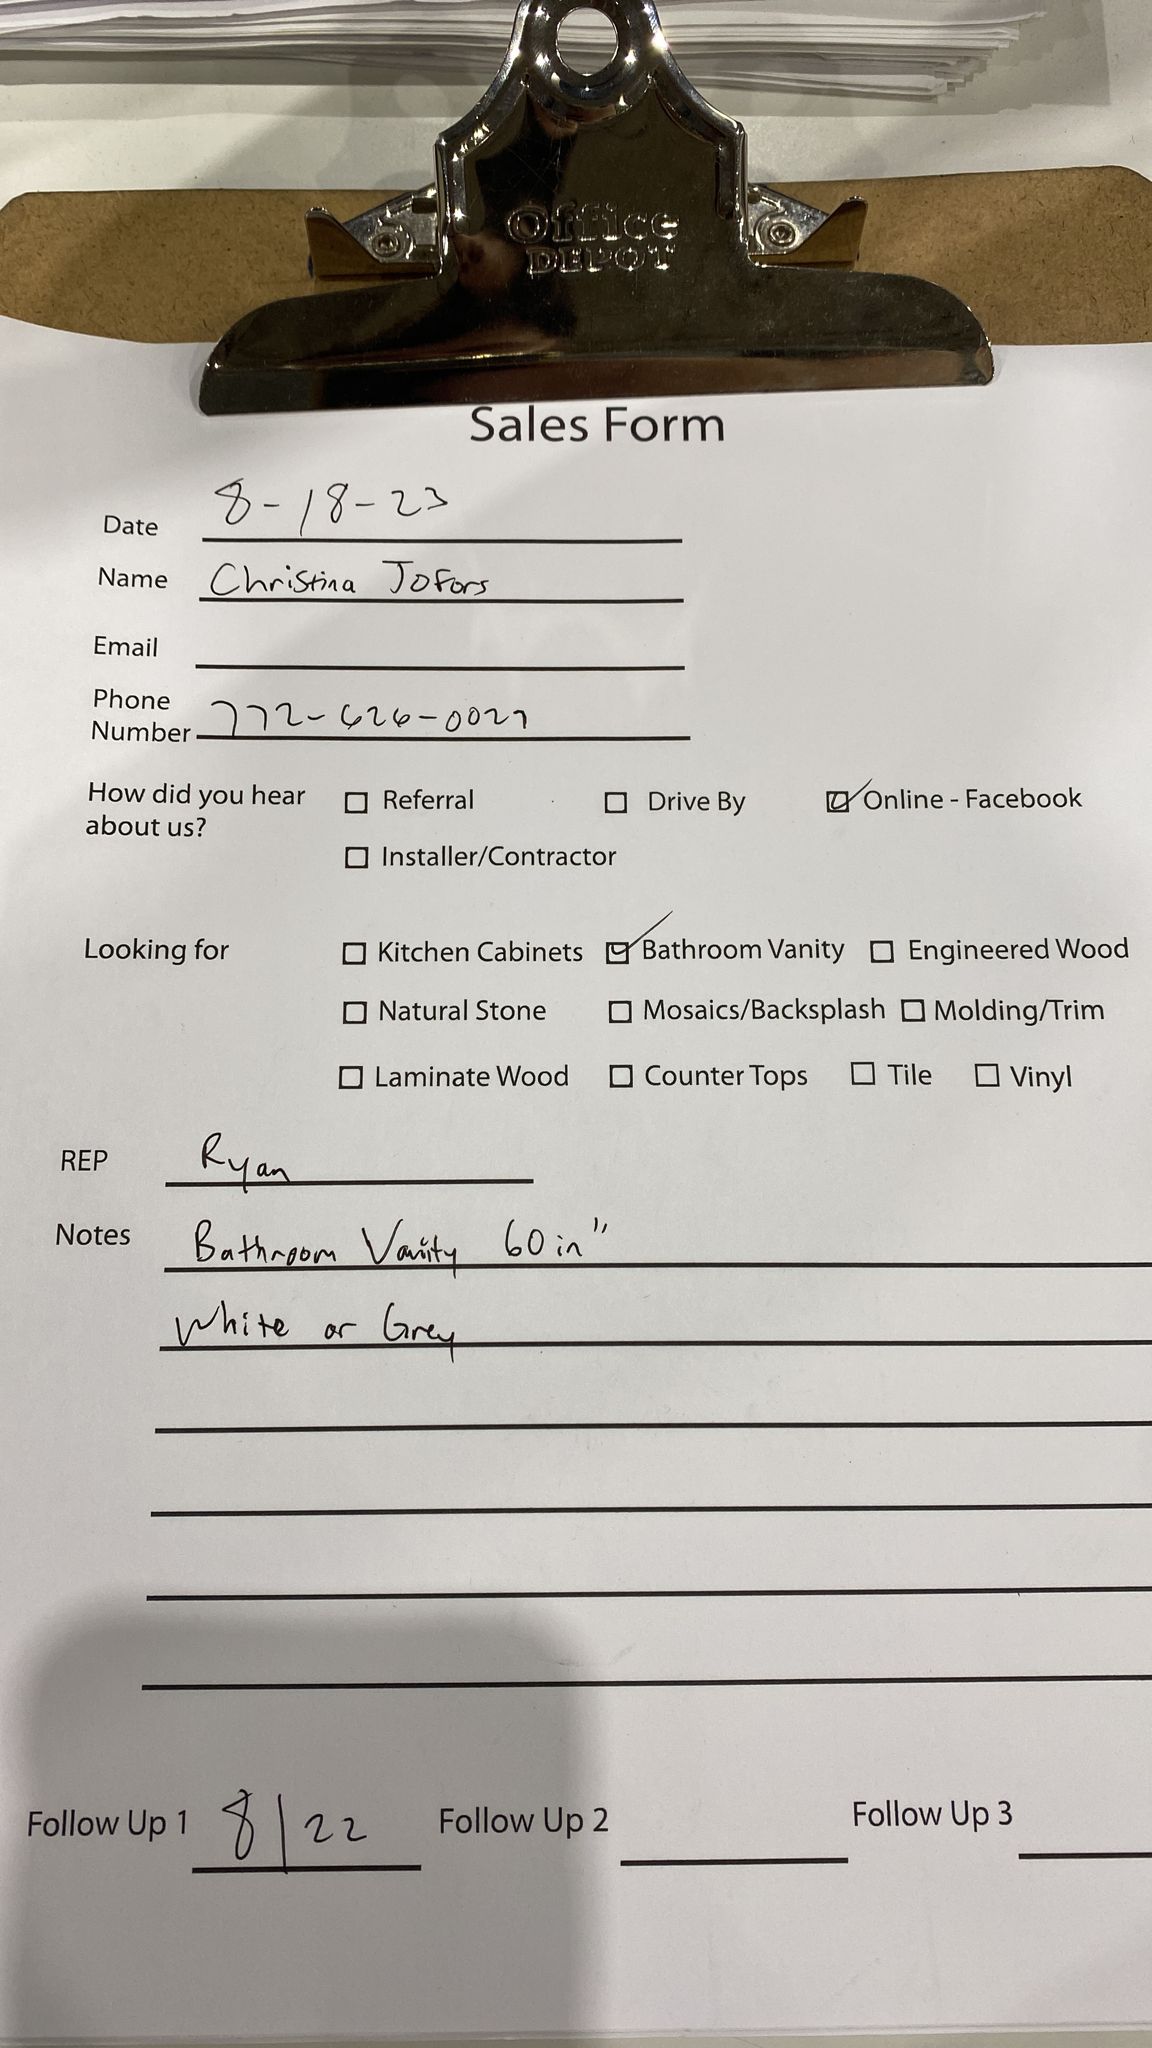 Office
DEPOT
Sales Form
Date 8-18-23
Name Christina Jofors
Email
Phone
Number 772-626-0027
How did you hear
about us?
☐ Referral ☐ Drive By ☑ Online - Facebook
☐ Installer/Contractor
Looking for ☐ Kitchen Cabinets ☑ Bathroom Vanity ☐ Engineered Wood
☐ Natural Stone ☐ Mosaics/Backsplash ☐ Molding/Trim
☐ Laminate Wood ☐ Counter Tops ☐ Tile ☐ Vinyl
REP Ryan
Notes Bathroom Vanity 60 in"
White or Grey
Follow Up 1 8/22 Follow Up 2 Follow Up 3